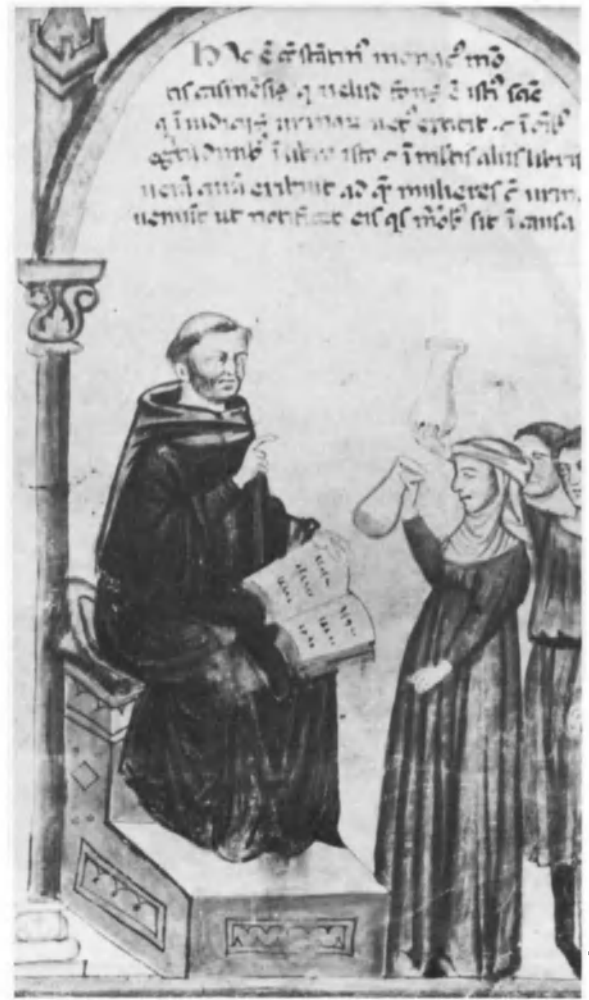 Hic ē ↄstātin⁹ monac⁹ mō
tis casinēsis q velud fōns ē isti⁹ sciē
q ī iudiciis urinarū extitit ⁊ ī oīb⁹
egritudinib⁹ ī libro isto ⁊ ī mltis aliis libris
verā curā exibuit ad q̄ mulieres c̄ urin
venūt ut notificet eis q̄s mōb⁹ sit ī causa